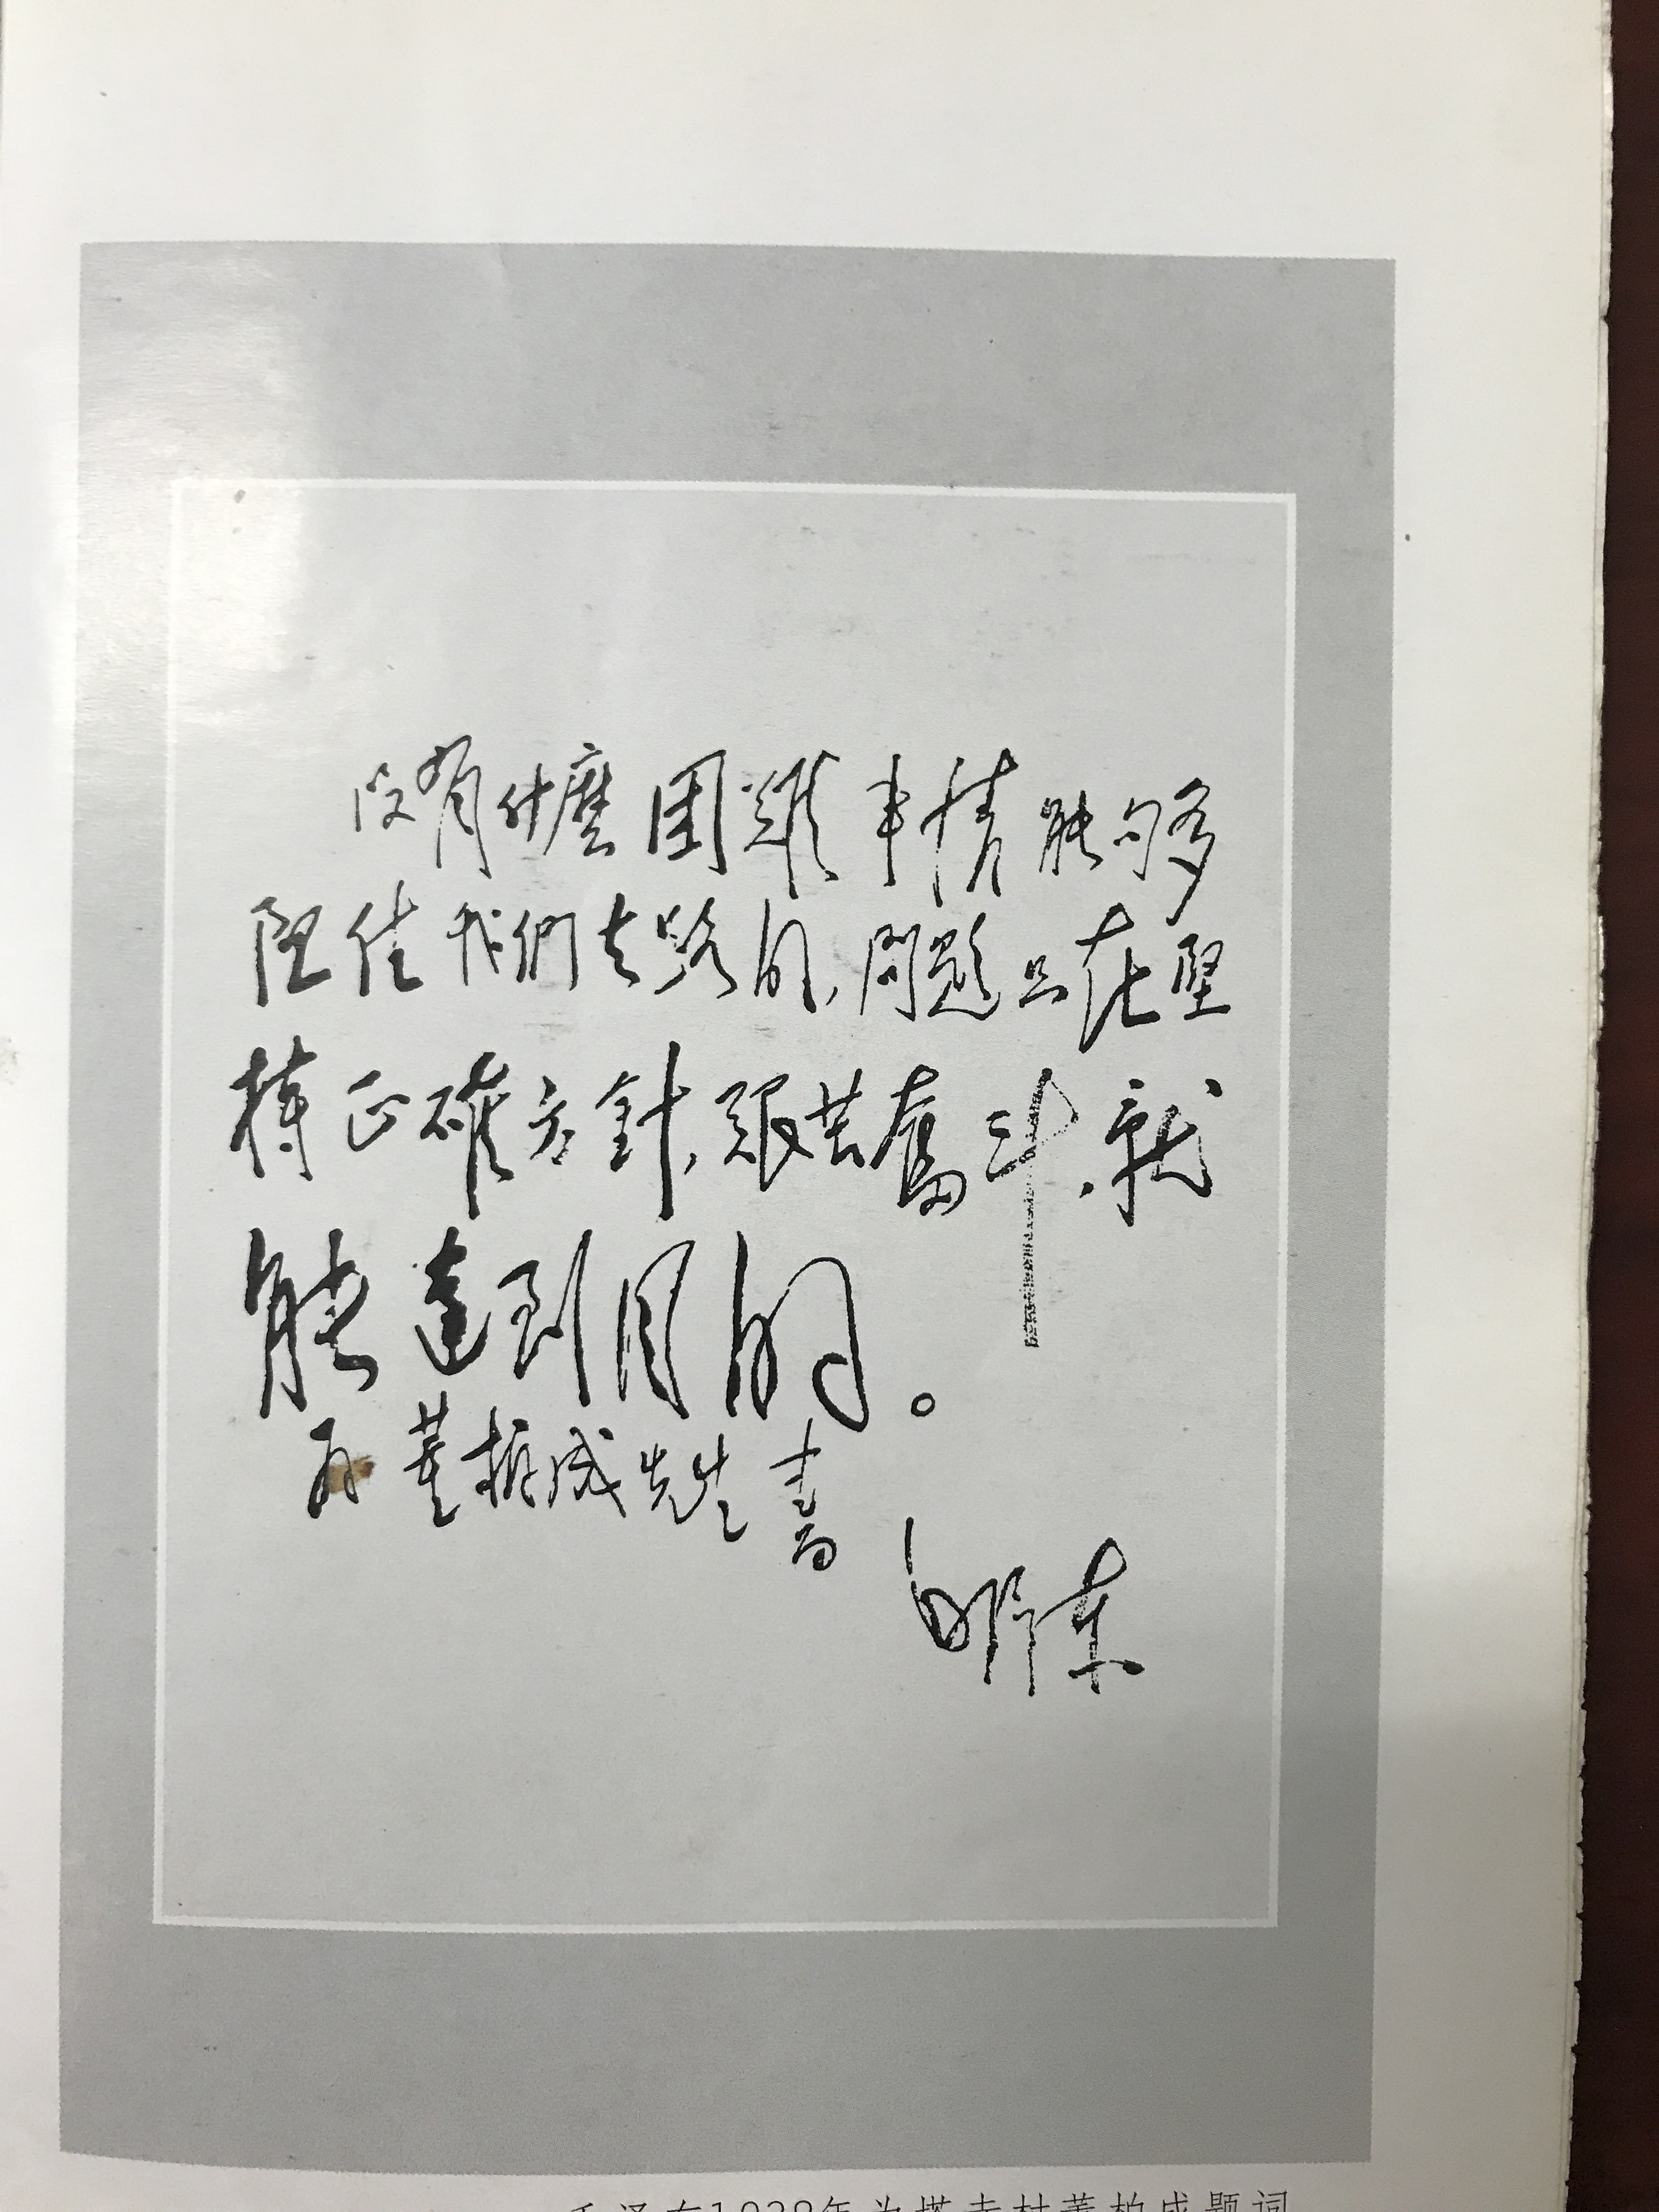 没有什麽困難事情能够
阻住我們去路的,問題只在堅
持正確方針,艰苦奮斗,就
能達到目的。
为董柏成先生書
毛泽东
毛泽东1938年为塔寺村董柏成题词